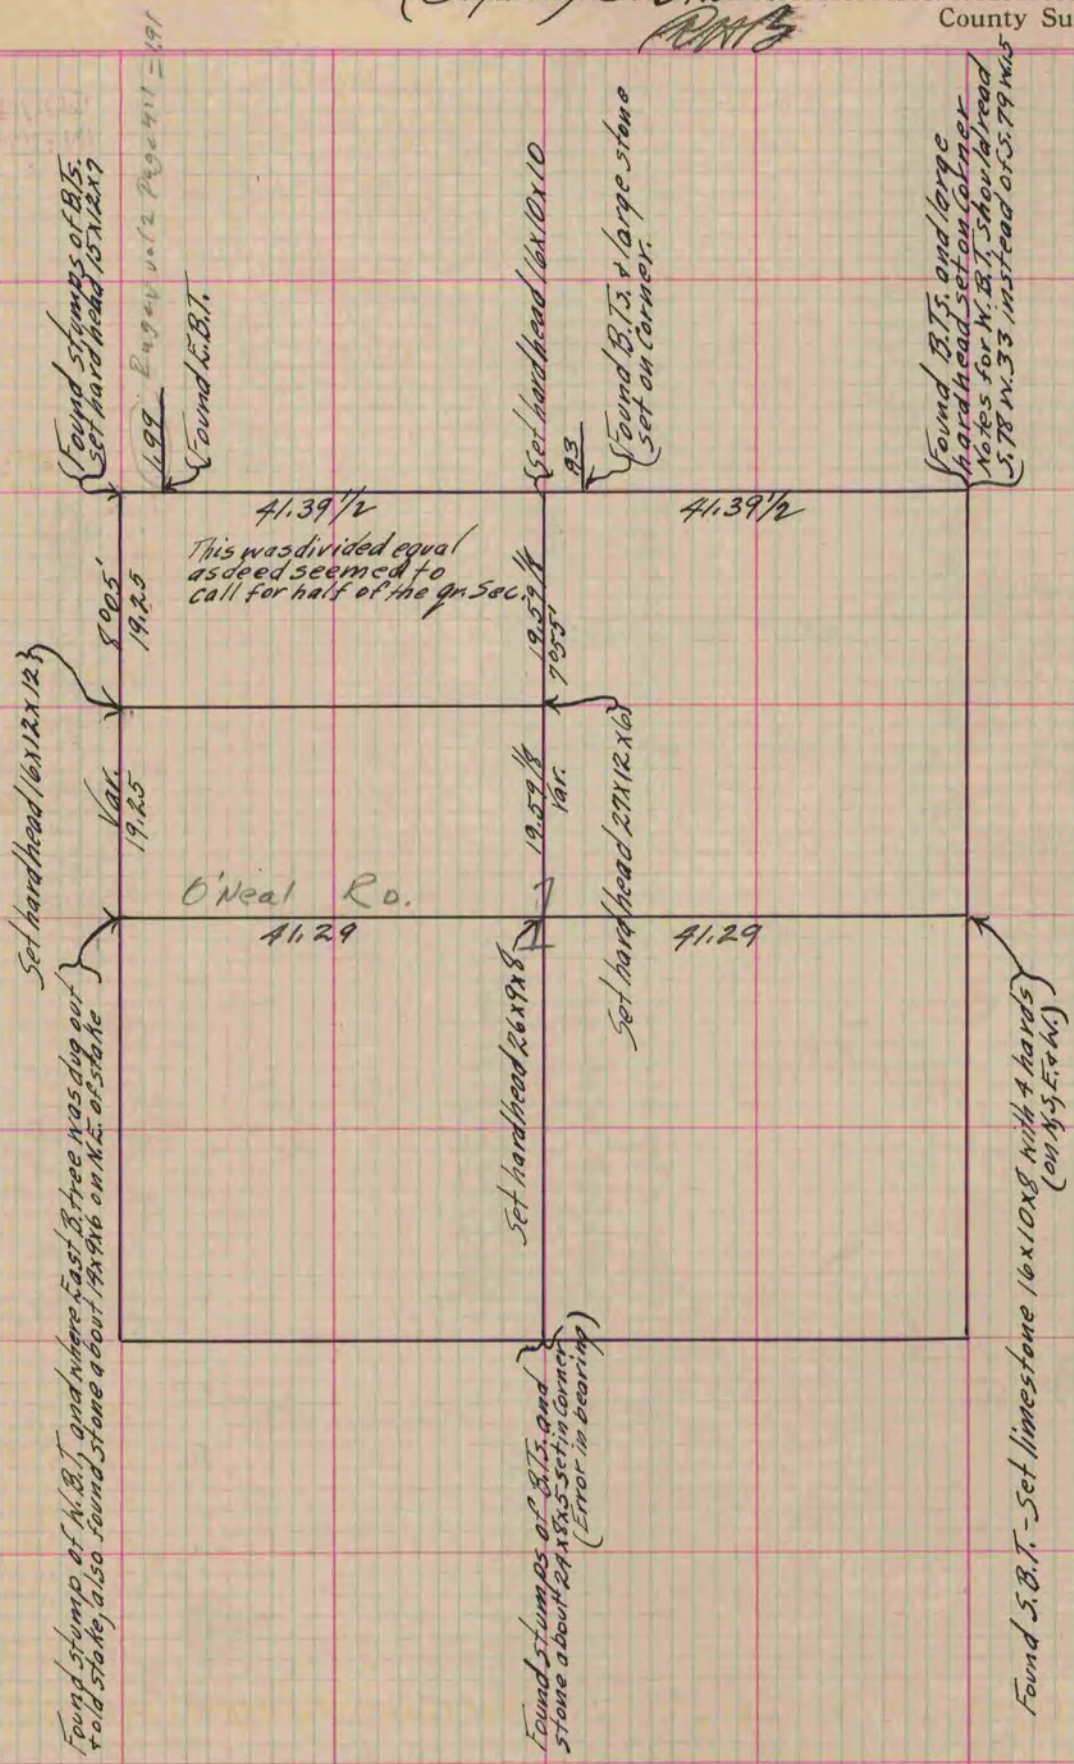 County Su
Found stumps of B.Ts.
set hard head 15x12x7
1.99
vol 2 Page 411 = 1.91
Found E.B.T.
Set hardhead 16x10x10
.93
Found B.Ts. & large stone
set on Corner.
Found B.Ts. and large
hardhead set on Corner
Notes for W.B.T. should read
S.78 W.33 instead of S.79 W.15
41.39 1/2
41.39 1/2
This was divided equal
as deed seemed to
call for half of the qr. Sec.
8°05'
19.25
19.59 1/8
7°55'
Set hardhead 16x12x12
Var.
19.25
19.59 1/8
Var.
Set hard head 27x12x6
O'Neal Rd.
41.29
41.29
Set hardhead 26x9x8
Found stump of W.B.T. and where East B. tree was dug out
& old stake, also found stone about 14x9x6 on N.E. of stake
Found stumps of B.Ts. and
stone about 24x8x5 set in Corner
(Error in bearing)
Found S.B.T. - Set limestone 16x10x8 with 4 hards
(on N,S,E.&W.)